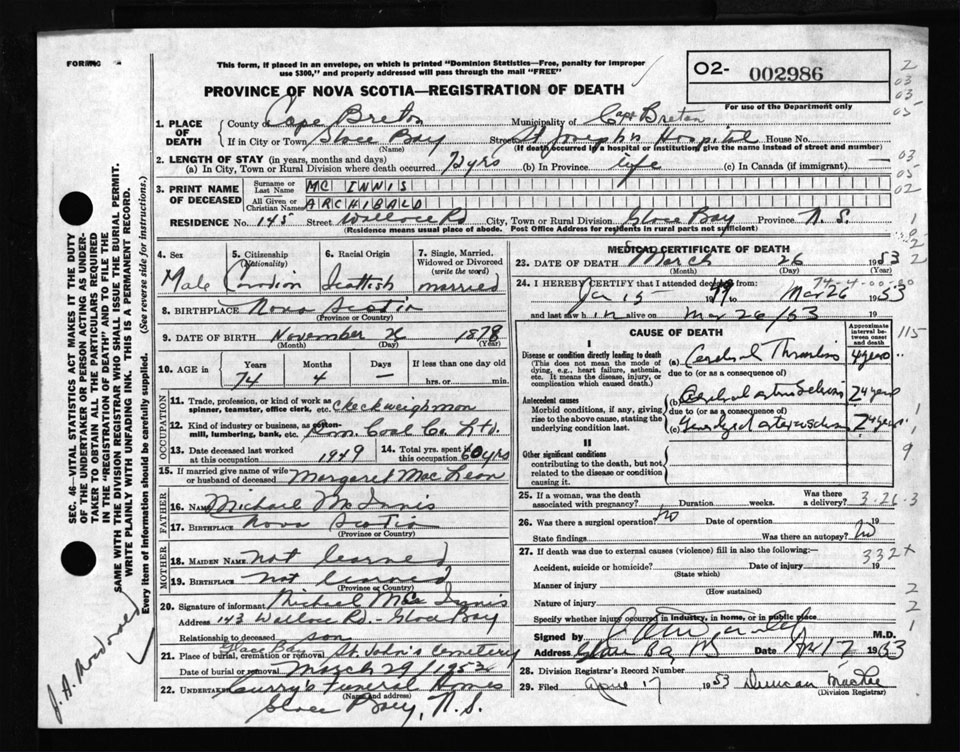 FORM C
This form, if placed in an envelope, on which is printed "Dominion Statistics—Free, penalty for improper
use $300," and properly addressed will pass through the mail "FREE"
O2- 002986
For use of the Department only
PROVINCE OF NOVA SCOTIA—REGISTRATION OF DEATH
1. PLACE OF DEATH County of Cape Breton Municipality of Cape Breton
If in City or Town Glace Bay (Name) Street St Joseph's Hospital House No.
(If death occurred in a hospital or institution, give the name instead of street and number)
2. LENGTH OF STAY (in years, months and days)
(a) In City, Town or Rural Division where death occurred 72 yrs (b) In Province life (c) In Canada (if immigrant) —
3. PRINT NAME OF DECEASED Surname or Last Name MC INNIS
All Given or Christian Names ARCHIBALD
RESIDENCE No. 145 Street Wallace Rd City, Town or Rural Division Glace Bay Province N.S.
(Residence means usual place of abode. Post Office Address for residents in rural parts not sufficient)
4. Sex Male
5. Citizenship (Nationality) Canadian
6. Racial Origin Scottish
7. Single, Married, Widowed or Divorced (write the word) married
8. BIRTHPLACE Nova Scotia
(Province or Country)
9. DATE OF BIRTH November 26 1878
(Month) (Day) (Year)
10. AGE in Years 74 Months 4 Days — If less than one day old hrs. or min.
OCCUPATION
11. Trade, profession, or kind of work as spinner, teamster, office clerk, etc. checkweighman
12. Kind of industry or business, as cotton-mill, lumbering, bank, etc. Dom. Coal Co. Ltd.
13. Date deceased last worked at this occupation 1949
14. Total yrs. spent in this occupation 60 yrs
15. If married give name of wife or husband of deceased Margaret MacLean
FATHER
16. NAME Michael McInnis
17. BIRTHPLACE Nova Scotia
(Province or Country)
MOTHER
18. MAIDEN NAME not learned
19. BIRTHPLACE not learned
(Province or Country)
20. Signature of informant Michael Mac Innis
Address 143 Wallace Rd - Glace Bay
Relationship to deceased son
21. Place of burial, cremation or removal Glace Bay St. John's Cemetery
Date of burial or removal March 29/1953
22. UNDERTAKER Curry's Funeral Homes
(Name and address)
Glace Bay, N.S.
MEDICAL CERTIFICATE OF DEATH
23. DATE OF DEATH March 26 1953
(Month) (Day) (Year)
24. I HEREBY CERTIFY that I attended deceased from:
Jan 15 1949 to Mar 26 1953
and last saw h im alive on Mar 26/53
CAUSE OF DEATH
Approximate interval between onset and death
I
Disease or condition directly leading to death
(This does not mean the mode of dying, e.g., heart failure, asthenia, etc. It means the disease, injury, or complication which caused death.)
(a) Cerebral Thrombosis 4 years
due to (or as a consequence of)
Antecedent causes
Morbid conditions, if any, giving rise to the above cause, stating the underlying condition last.
(b) Cerebral arteriosclerosis 4 years
due to (or as a consequence of)
(c) Generalized arteriosclerosis 4 years
II
Other significant conditions
contributing to the death, but not related to the disease or condition causing it.
25. If a woman, was the death associated with pregnancy? Duration weeks. Was there a delivery?
26. Was there a surgical operation? no Date of operation 19
State findings Was there an autopsy? no
27. If death was due to external causes (violence) fill in also the following:—
Accident, suicide or homicide? Date of injury 19
(State which)
Manner of injury
(How sustained)
Nature of injury
Specify whether injury occurred in industry, in home, or in public place
Signed by M.D.
Address Glace Bay Date Apr 17 1953
28. Division Registrar's Record Number
29. Filed April 17 1953 Duncan MacRae
(Division Registrar)
SEC. 46—VITAL STATISTICS ACT MAKES IT THE DUTY
OF THE UNDERTAKER OR PERSON ACTING AS UNDER-
TAKER TO OBTAIN ALL THE PARTICULARS REQUIRED
IN THE "REGISTRATION OF DEATH" AND TO FILE THE
SAME WITH THE DIVISION REGISTRAR WHO SHALL ISSUE THE BURIAL PERMIT.
WRITE PLAINLY WITH UNFADING INK. THIS IS A PERMANENT RECORD.
Every item of Information should be carefully supplied. (See reverse side for instructions.)
J. A. MacDonald
2
03
03
05
03
05
02
1
2
115
1
1
9
3-26-3
332X
2
2
1